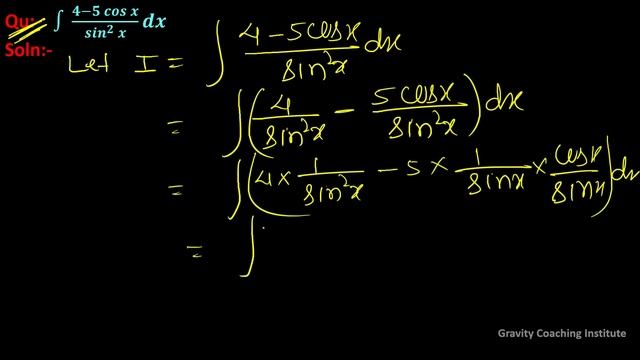 Qu:- ∫ (4−5 cos x)/(sin² x) dx
Soln:-
Let I = ∫ (4−5cosx)/(sin²x) dx
= ∫ (4/(sin²x) − (5cosx)/(sin²x)) dx
= ∫ (4 × 1/(sin²x) − 5 × 1/(sinx) × (cosx)/(sinx)) dx
= ∫
Gravity Coaching Institute